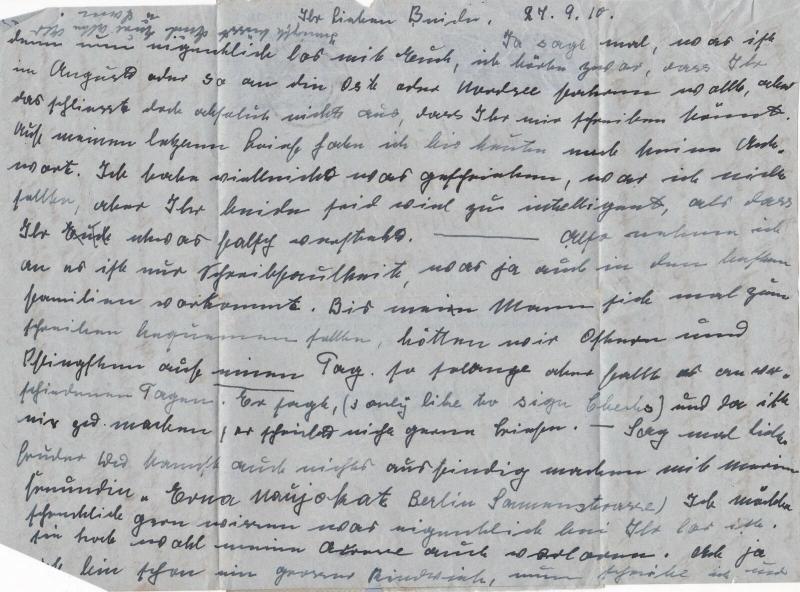 Ihr lieben Beiden, 27.9.10.
Ja sagt mal, was ist
denn nun eigentlich los mit Euch, ich hörte zwar, dass Ihr
im August oder so an die Ost oder Nordsee fahren wollt, aber
das schliesst doch absolut nichts aus, dass Ihr mir schreiben könnt.
Auf meinen letzten Brief habe ich bis heute noch keine Ant-
wort. Ich habe vielleicht was geschrieben, was ich nicht
sollte, aber Ihr beide seid viel zu intelligent, als dass
Ihr etwas falsch versteht. Also nehme ich
an es ist nur Schreibfaulheit, was ja auch in den besten
Familien vorkommt. Bis mein Mann sich mal zum
schreiben bequemen sollte, hätten wir Ostern und
Pfingsten auf einen Tag. so solange aber fällt es an ver-
schiedenen Tagen. Er sagt, (I only like to sign Checks) und da ist
nix zu machen, er schreibt nicht gerne Briefe. — Sag mal lieb.
Bruder kannst auch nichts ausfindig machen mit meiner
Freundin "Erna Naujokat Berlin Samenstrasse) Ich möchte
schrecklich gern wissen was eigentlich bei Ihr los ist.
sie hat wohl meine Adresse auch verloren. Ach ja
ich bin schon ein grosses Rindvieh, nun schreibe ich und